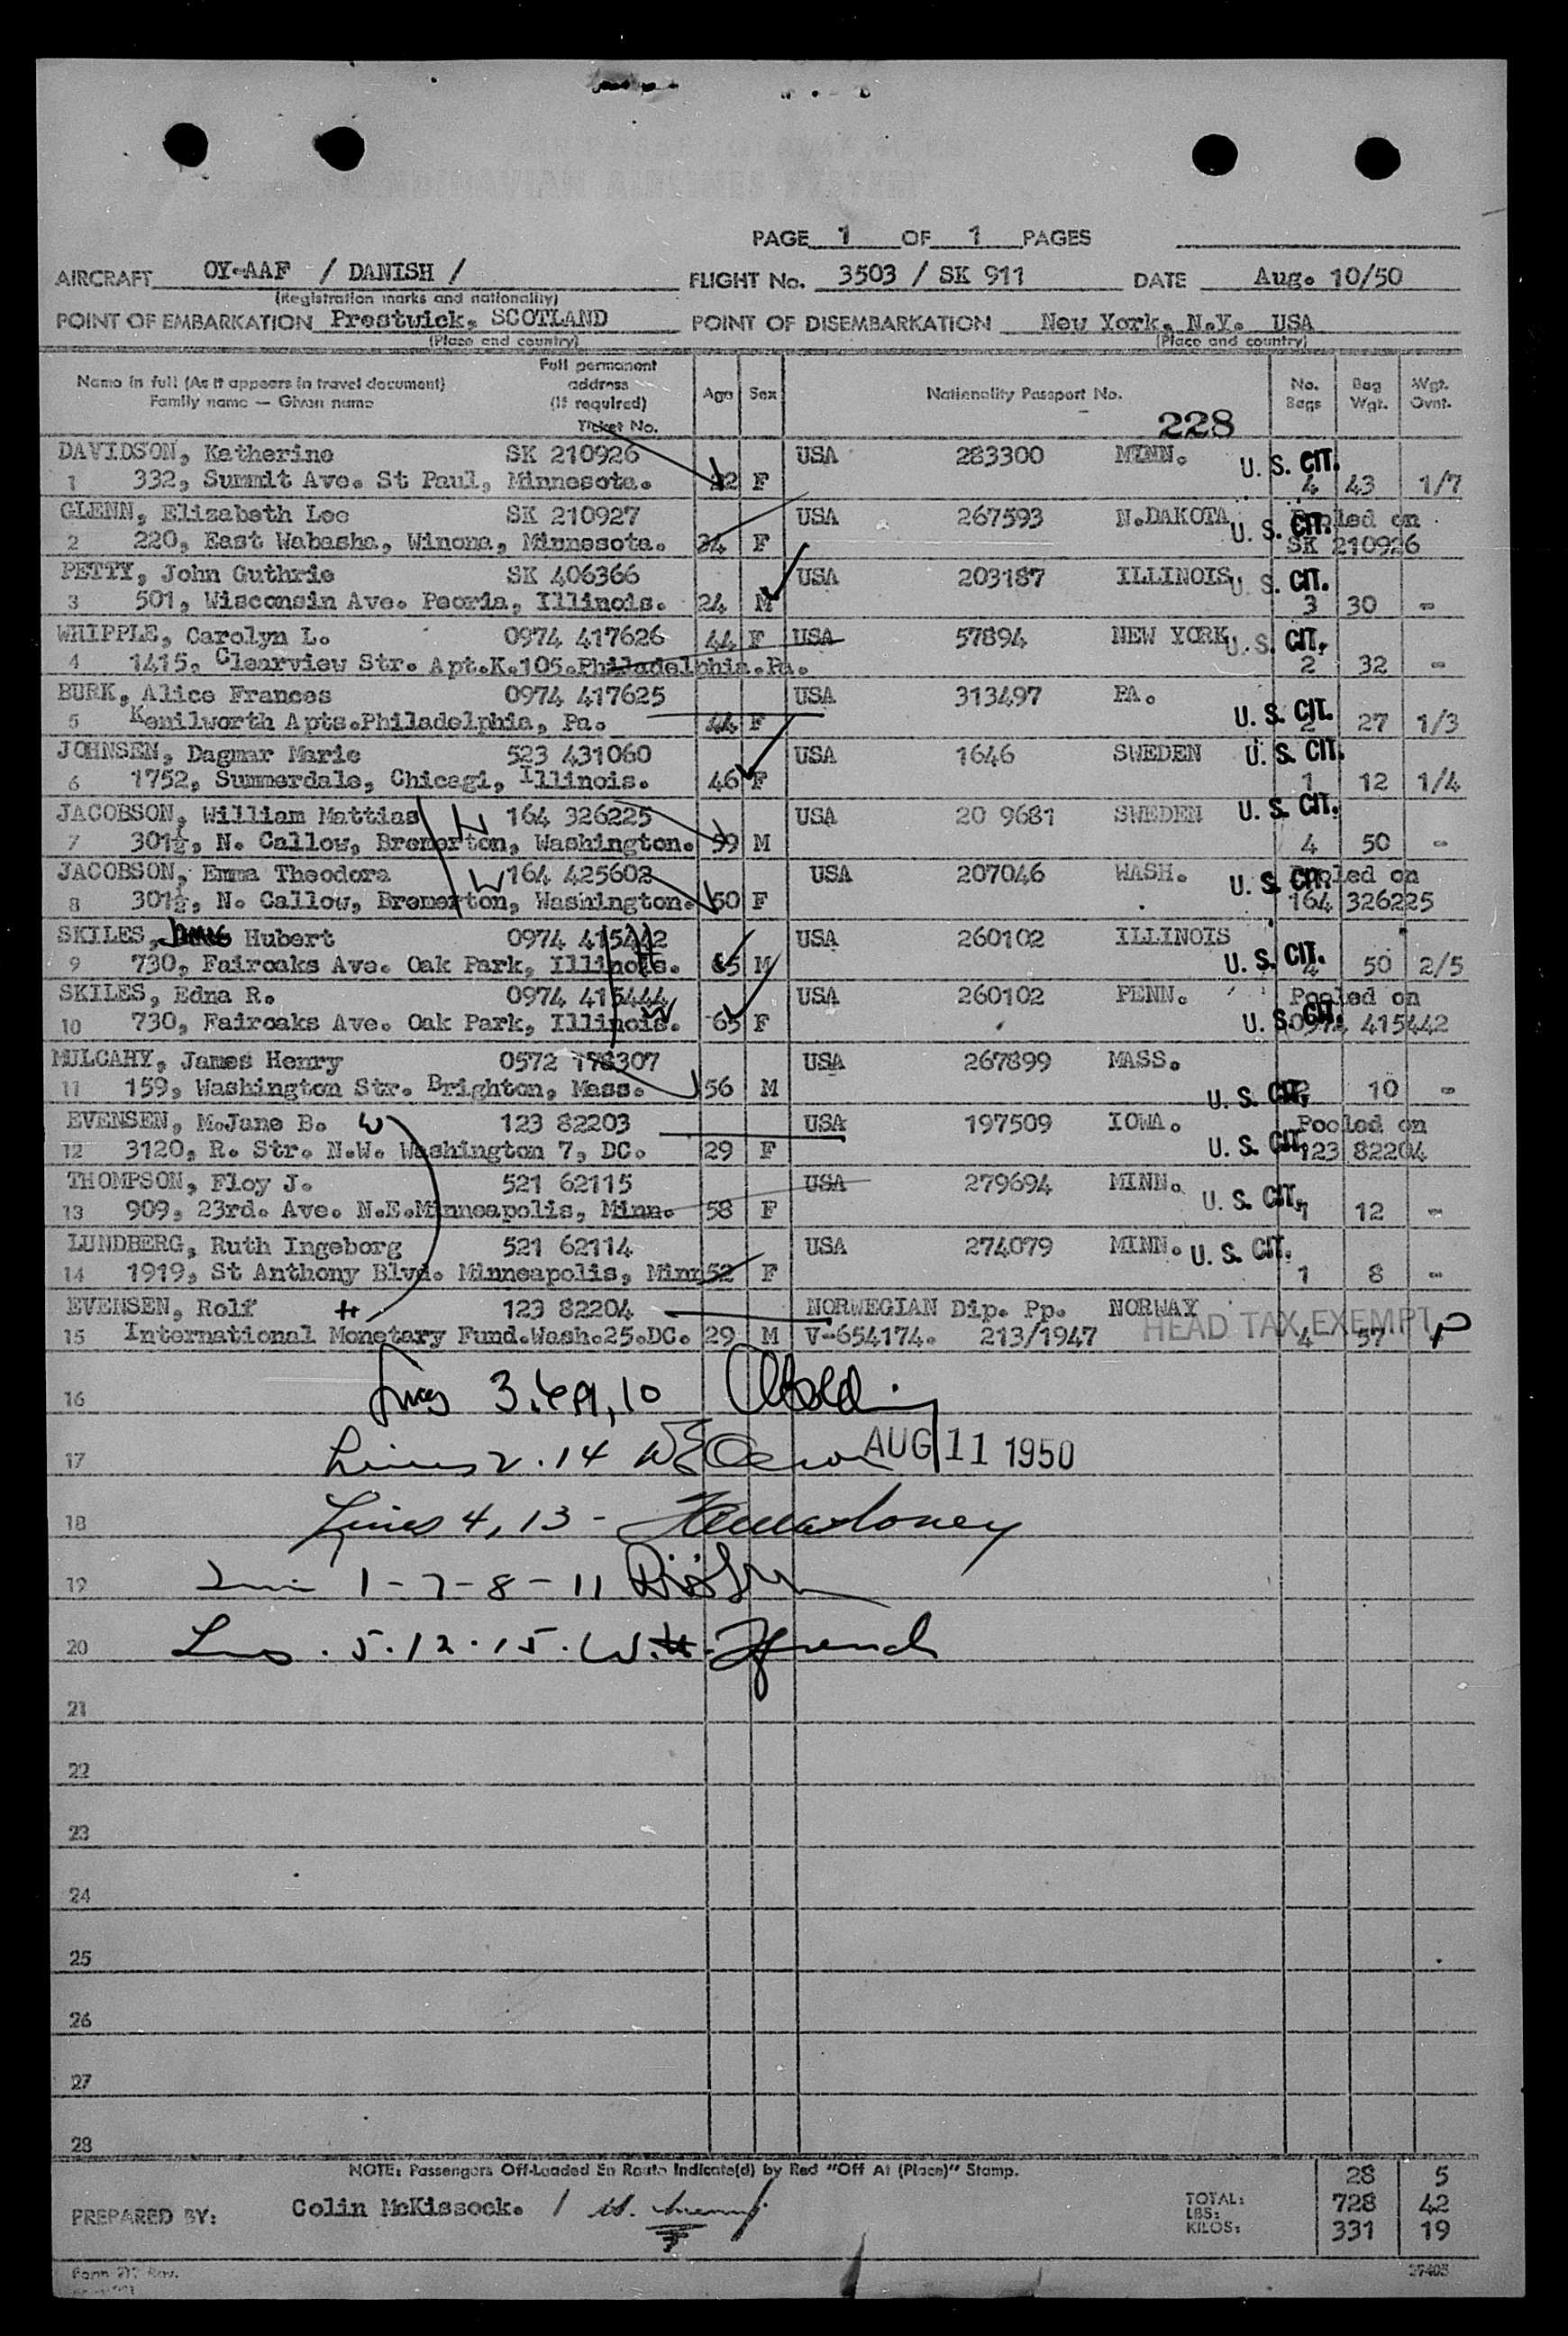 PAGE 1 OF 1 PAGES
AIRCRAFT OY-AAF / DANISH / FLIGHT No. 3503 / SK 911 DATE Aug. 10/50
(Registration marks and nationality)
POINT OF EMBARKATION Prestwick, SCOTLAND POINT OF DISEMBARKATION New York, N.Y. USA
(Place and country) (Place and country)
Name in full (As it appears in travel document) Full permanent address (If required) Age Sex Nationality Passport No. No. Bags Bag Wgt. Wgt. Ovnt.
Family name — Given name Ticket No. 228
DAVIDSON, Katherine SK 210926 USA 283300 MINN. U. S. CIT.
1 332, Summit Ave. St Paul, Minnesota. 22 F 4 43 1/7
GLENN, Elizabeth Lee SK 210927 USA 267593 N.DAKOTA U. S. CIT. Pooled on
2 220, East Wabasha, Winona, Minnesota. 24 F SK 210926
PETTY, John Guthrie SK 406366 USA 203187 ILLINOIS U. S. CIT.
3 501, Wisconsin Ave. Peoria, Illinois. 24 M 3 30 -
WHIPPLE, Carolyn L. 0974 417626 44 F USA 57894 NEW YORK U. S. CIT.
4 1415, Clearview Str. Apt.K.105.Philadelphia.Pa. 2 32 -
BURK, Alice Frances 0974 417625 USA 313497 PA. U. S. CIT.
5 Kenilworth Apts.Philadelphia, Pa. 44 F 2 27 1/3
JOHNSEN, Dagmar Marie 523 431060 USA 1646 SWEDEN U. S. CIT.
6 1752, Summerdale, Chicagi, Illinois. 46 F 1 12 1/4
JACOBSON, William Mattias H 164 326225 USA 20 9681 SWEDEN U. S. CIT.
7 301½, N. Callow, Bremerton, Washington. 59 M 4 50 -
JACOBSON, Emma Theodora W 164 425602 USA 207046 WASH. U. S. CIT. Pooled on
8 301½, N. Callow, Bremerton, Washington. 50 F 164 326225
SKILES, James Hubert 0974 415442 H USA 260102 ILLINOIS U. S. CIT.
9 730, Fairoaks Ave. Oak Park, Illinois. 65 M 4 50 2/5
SKILES, Edna R. 0974 415444 W USA 260102 PENN. U. S. CIT. Pooled on
10 730, Fairoaks Ave. Oak Park, Illinois. 65 F 0974 415442
MULCAHY, James Henry 0572 178307 USA 267899 MASS.
11 159, Washington Str. Brighton, Mass. 56 M U. S. CIT. 2 10 -
EVENSEN, M.Jane B. W 123 82203 USA 197509 IOWA. Pooled on
12 3120, R. Str. N.W. Washington 7, DC. 29 F U. S. CIT. 123 82204
THOMPSON, Floy J. 521 62115 USA 279694 MINN.
13 909, 23rd. Ave. N.E.Minneapolis, Minn. 58 F U. S. CIT. 1 12 -
LUNDBERG, Ruth Ingeborg 521 62114 USA 274079 MINN. U. S. CIT.
14 1919, St Anthony Blvd. Minneapolis, Minn 52 F 1 8 -
EVENSEN, Rolf H 123 82204 NORWEGIAN Dip. Pp. NORWAY
15 International Monetary Fund.Wash.25.DC. 29 M V-654174. 213/1947 HEAD TAX EXEMPT 4 57
16 Lines 3, 6, 9, 10
17 Lines 2.14 AUG 11 1950
18 Lines 4, 13 -
19 1-7-8-11
20 5.12.15.
21
22
23
24
25
26
27
28
NOTE: Passengers Off-Loaded En Route Indicate(d) by Red "Off At (Place)" Stamp.
28 5
PREPARED BY: Colin McKissock. / TOTAL: LBS: 728 42
KILOS: 331 19
Form 217 Rev. 27405